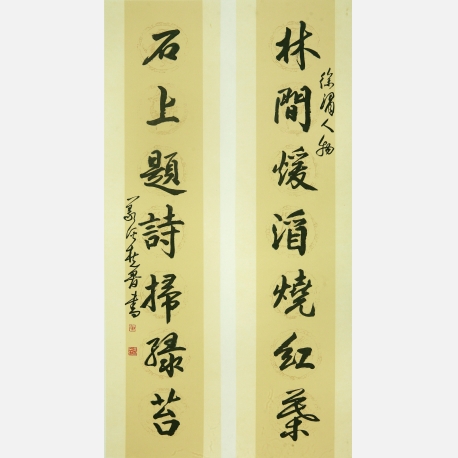 林間煖酒燒紅葉
徐渭人物
石上題詩掃緑苔